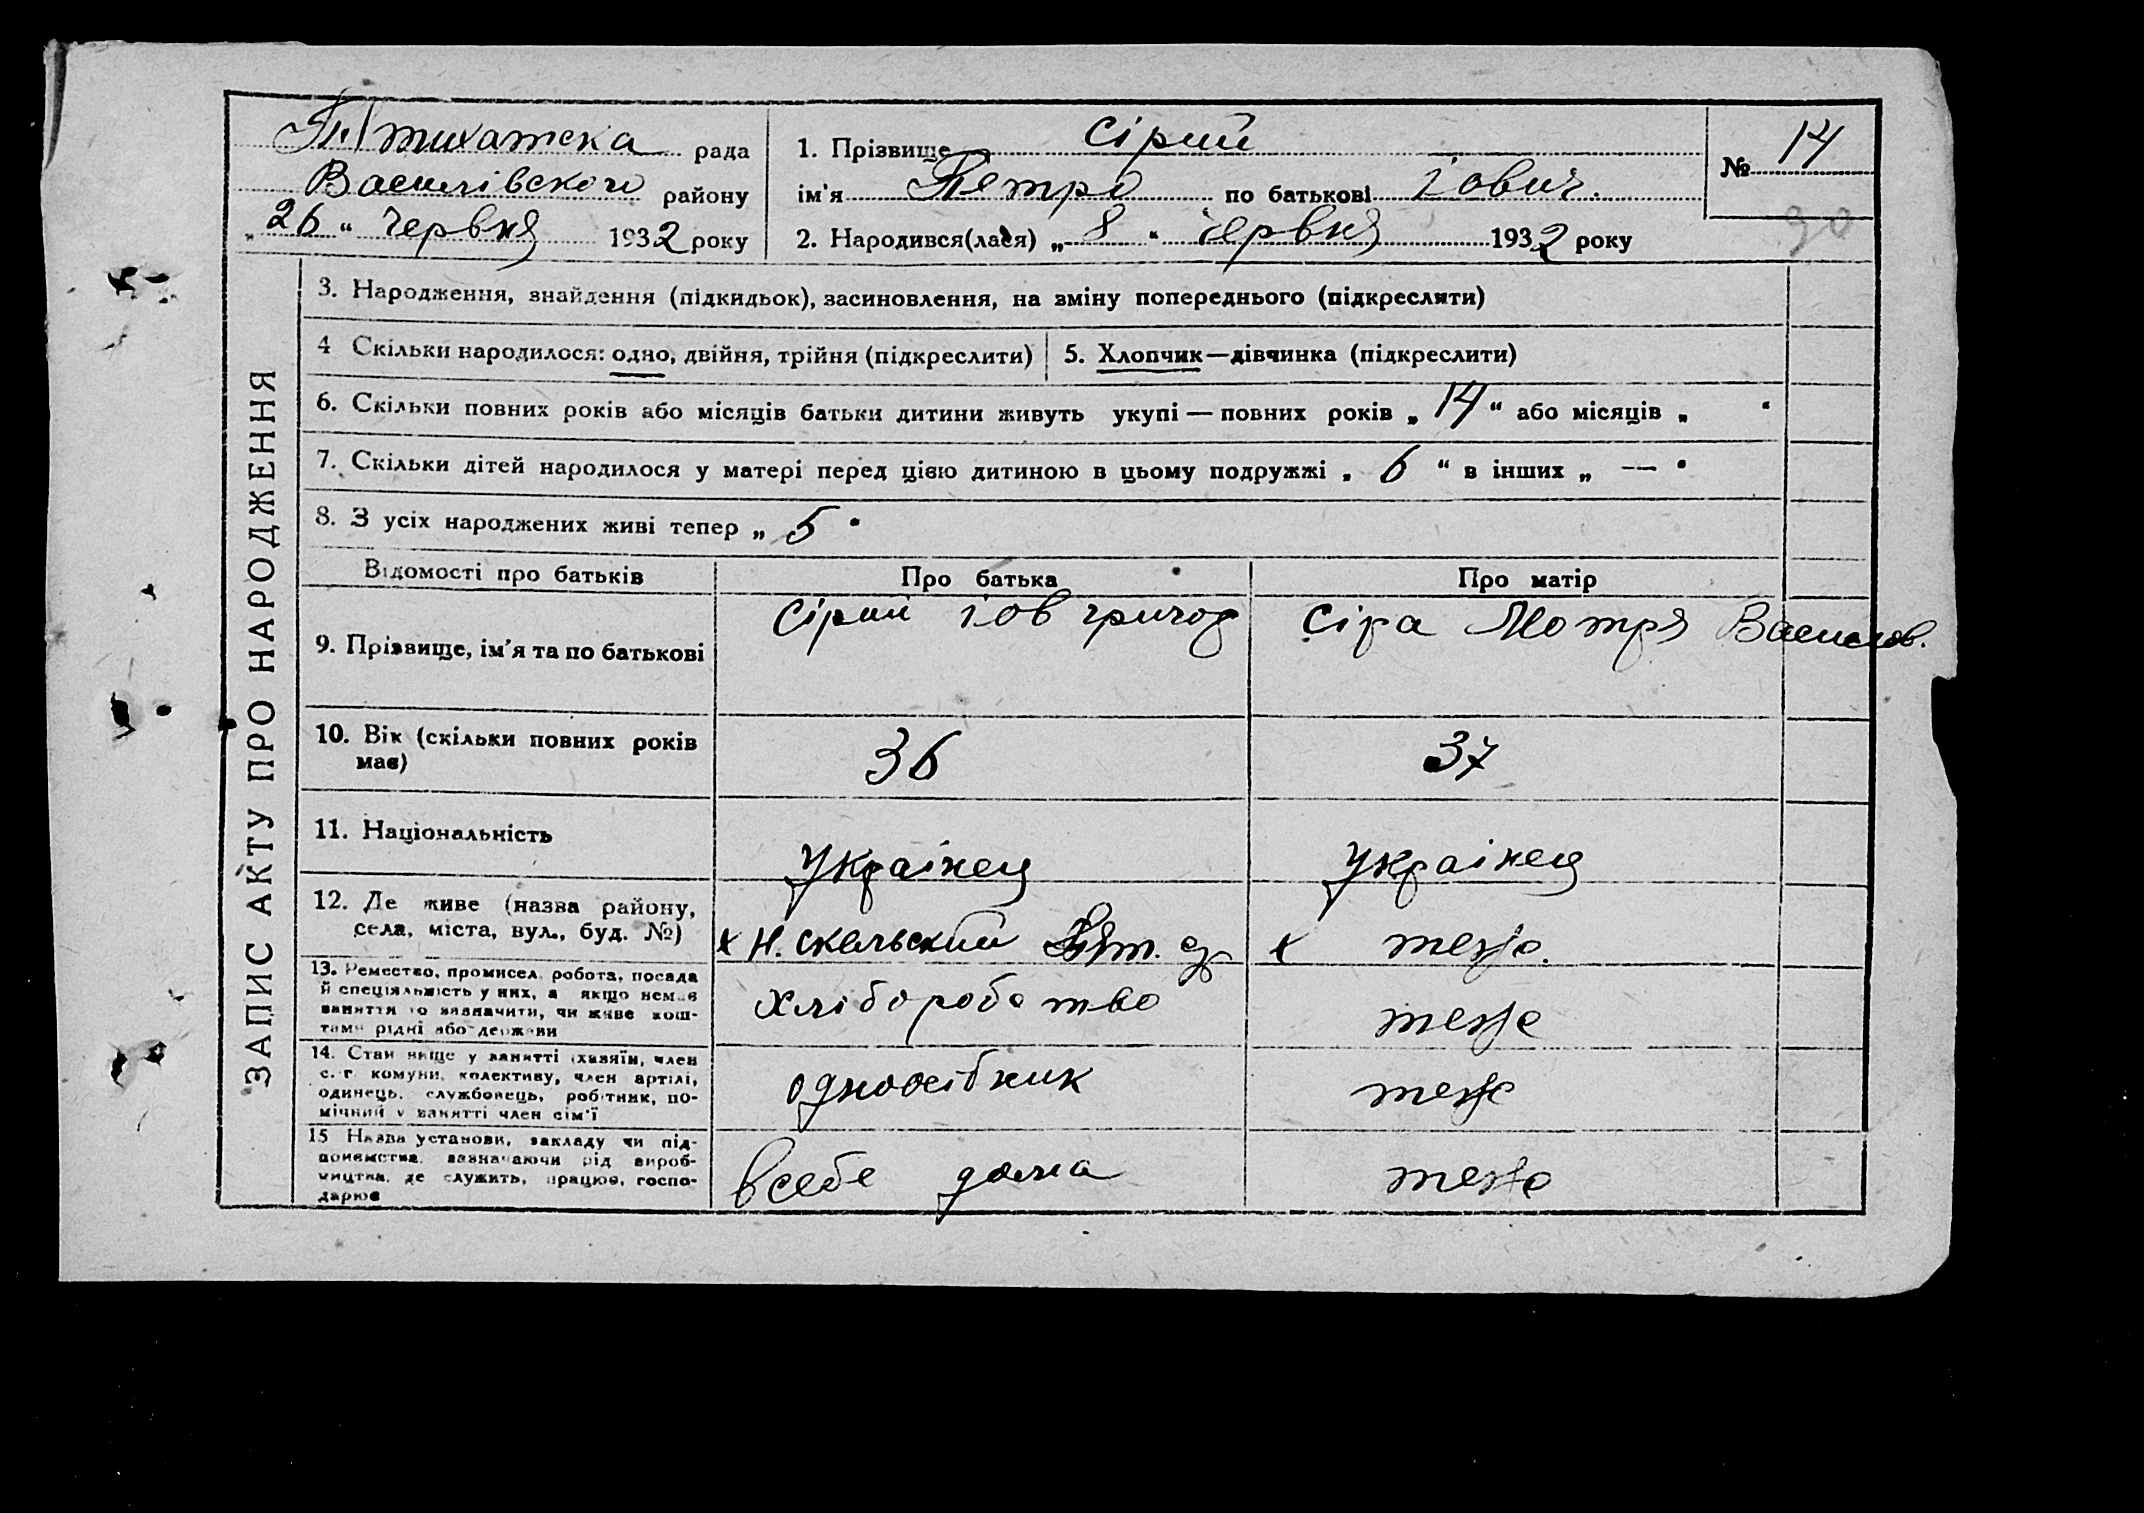 П'ятихатска рада
Василівского району
„26“ Червня 1932 року
1. Прізвище Сірий
ім'я Петро по батькові Іович.
2. Народився(лася) „8“ червня 1932 року
№ 14
90
ЗАПИС АКТУ ПРО НАРОДЖЕННЯ
3. Народження, знайдення (підкидьок), засиновлення, на зміну попереднього (підкреслити)
4 Скільки народилося: одно, двійня, трійня (підкреслити)
5. Хлопчик—дівчинка (підкреслити)
6. Скільки повних років або місяців батьки дитини живуть укупі — повних років „14“ або місяців „ “
7. Скільки дітей народилося у матері перед цією дитиною в цьому подружжі „6“ в інших „—“
8. З усіх народжених живі тепер „5“
Відомості про батьків Про батька Про матір
9. Прізвище, ім'я та по батькові
Сірий Іов григор
Сіра Мотря Василов.
10. Вік (скільки повних років
має)
36
37
11. Національність
Українец
Українец
12. Де живе (назва району,
села, міста, вул., буд. №)
х Н. скельский
х теже.
13. Ремество, промисел, робота, посада
й спеціяльність у них, а якщо немає
заняття то зазначити, чи живе кош-
тами рідні або держави
хліборобство
теже
14. Стан якще у занятті (хазяїн, член
с.-г комуни, колективу, член артілі,
одинець, службовець, робітник, по-
мічний у занятті член сім'ї
одноосібник
теже
15 Назва установи, закладу чи під-
приємства, зазначаючи рід вироб-
ництва, де служить, працює, госпо-
дарює
всебе дома
теже